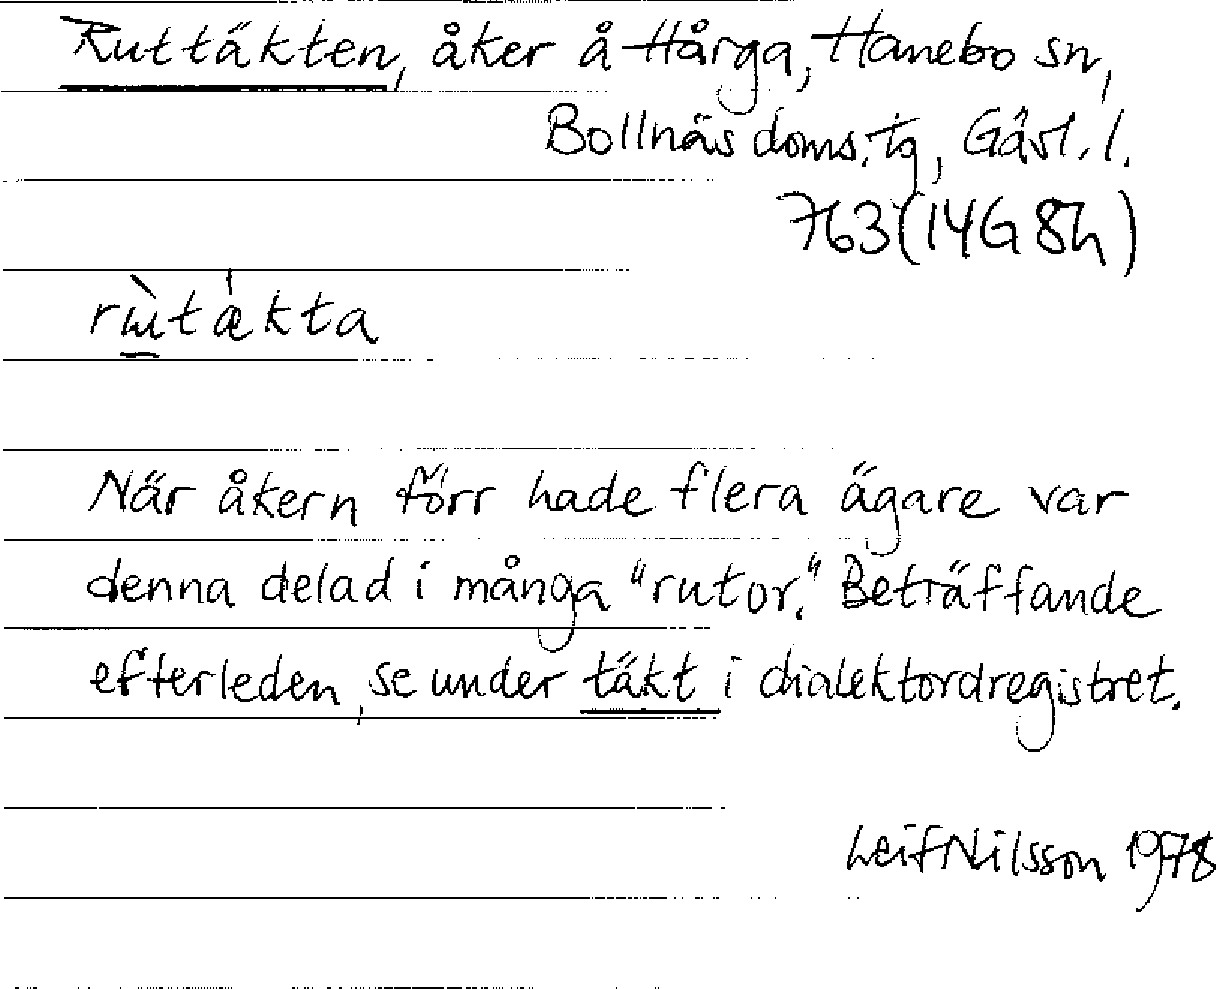 Ruttäkten, åker å Hårga, Hanebo sn,
Bollnäs doms.tg, Gävl. l.
763 (14G 8h)
rɯ̀tæ̀kta
När åkern förr hade flera ägare var
denna delad i många "rutor." Beträffande
efterleden, se under täkt i dialektordregistret.
Leif Nilsson 1978